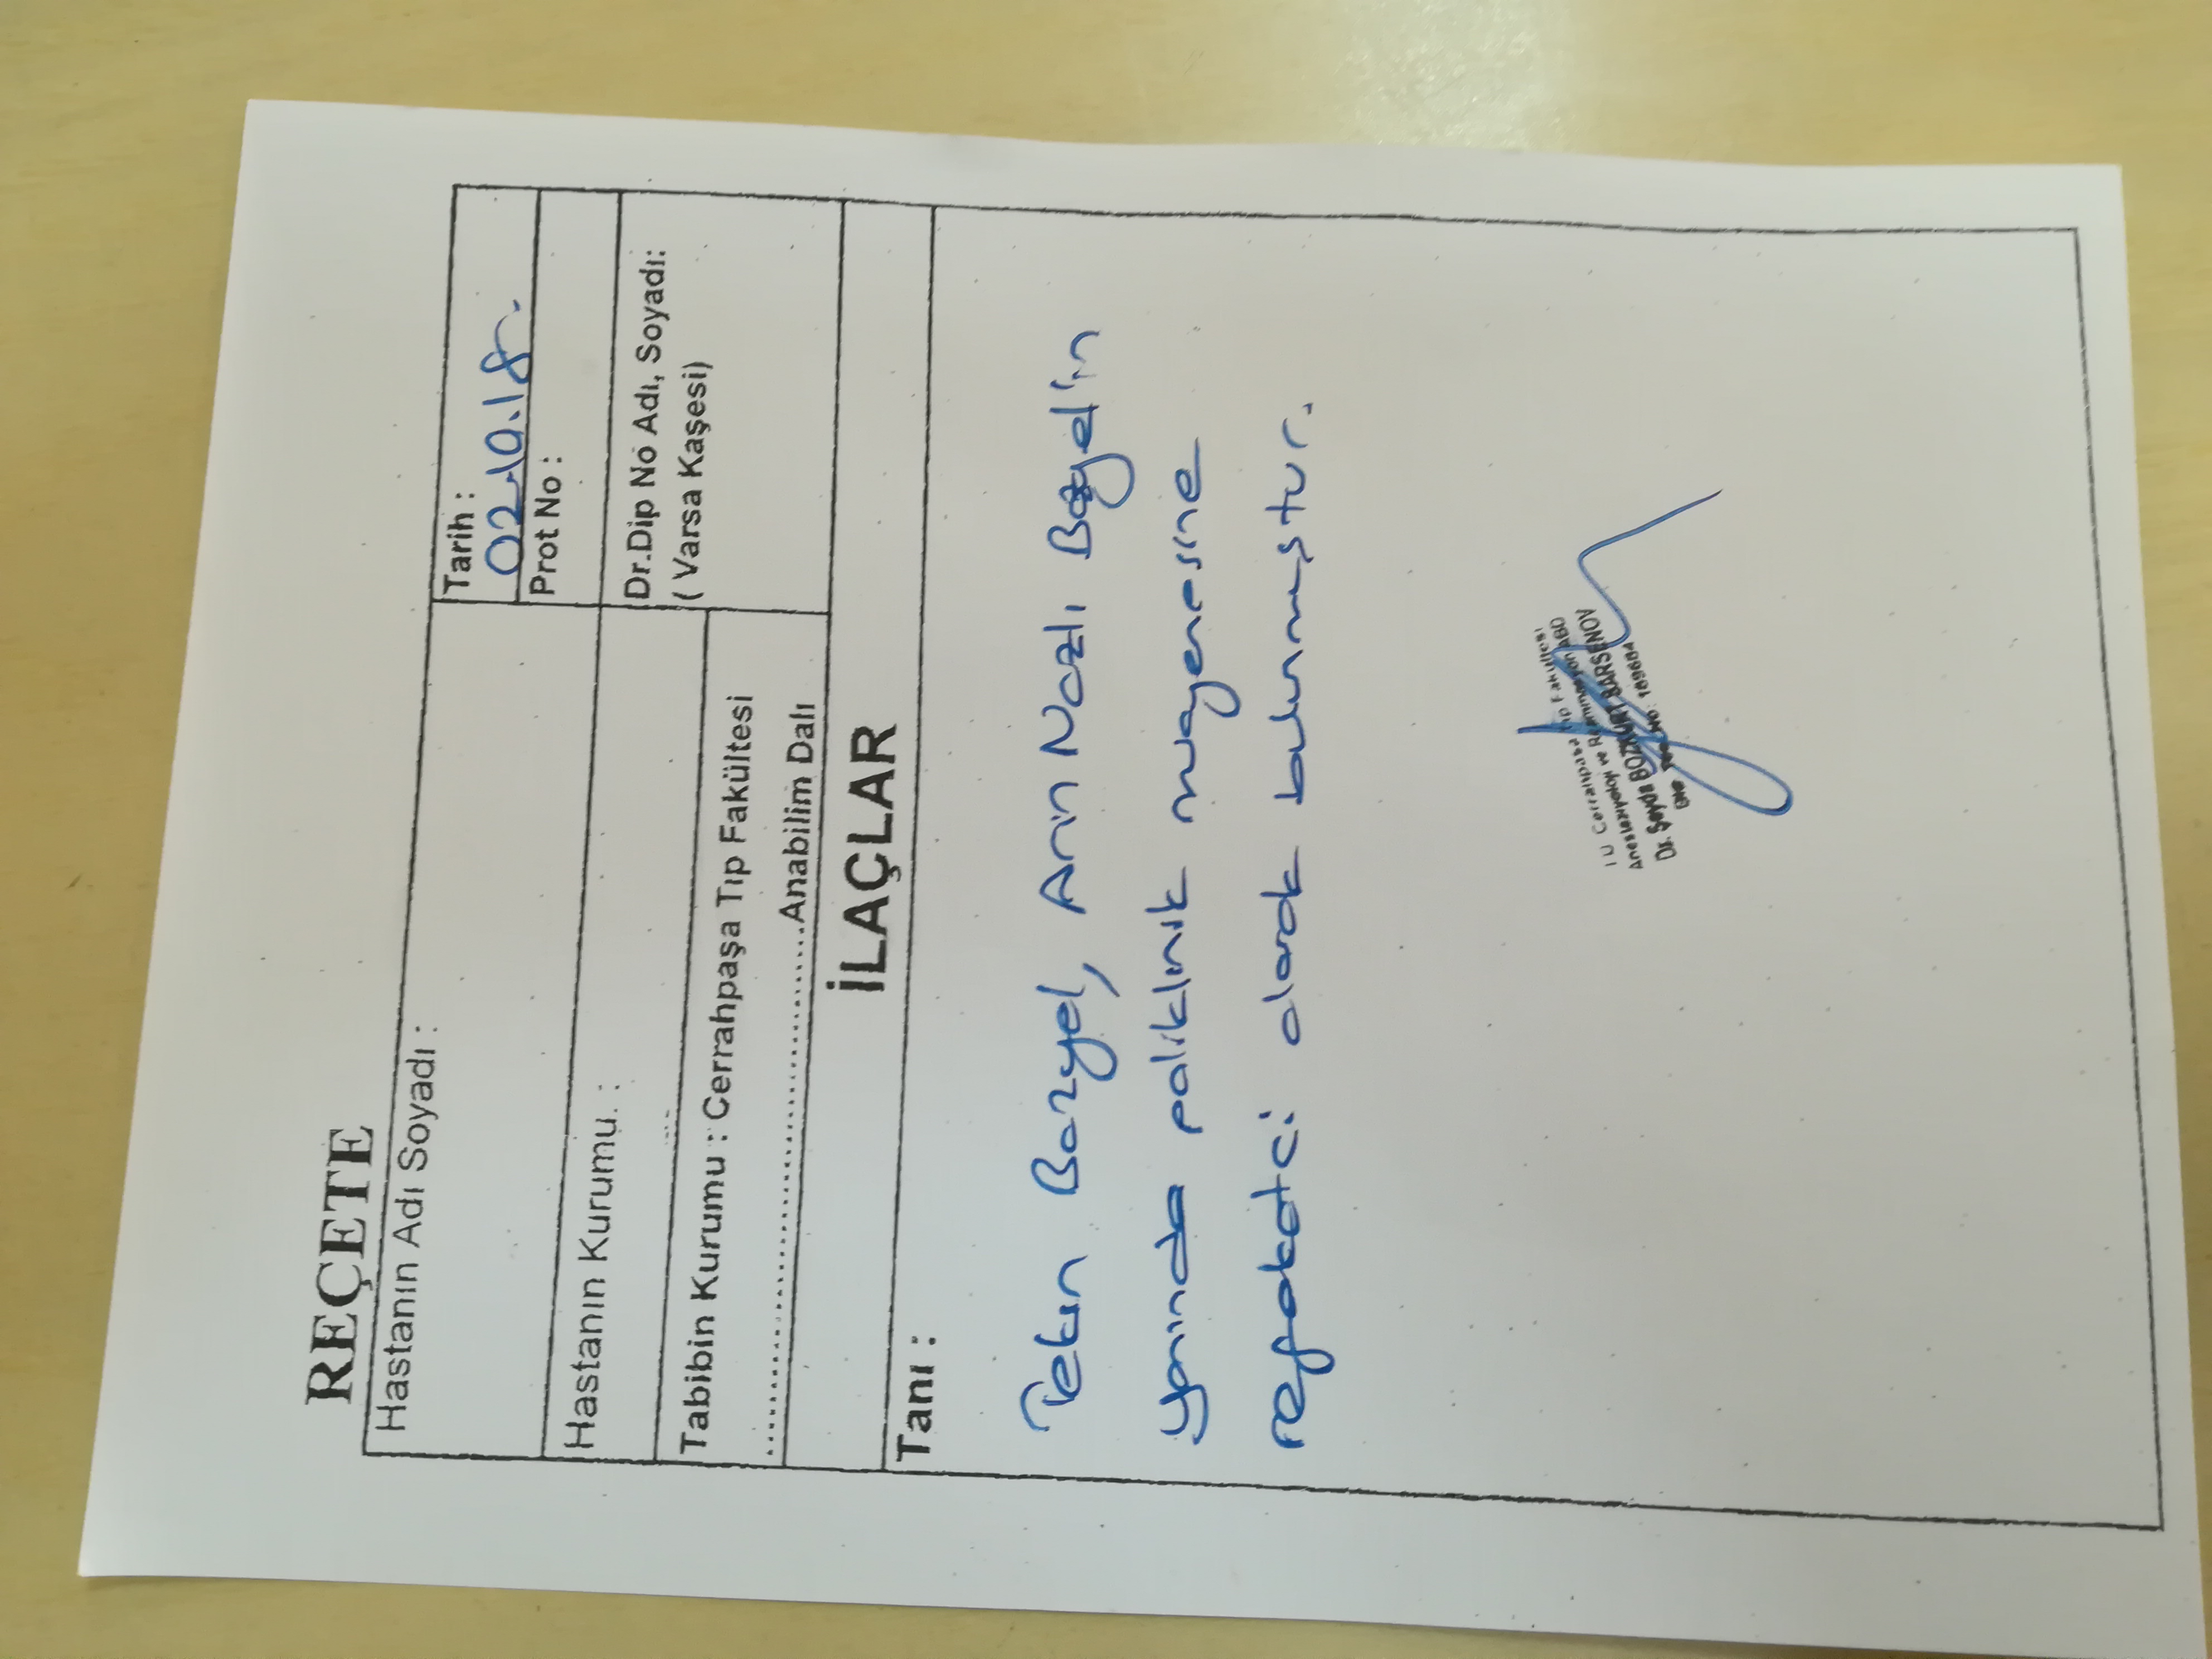 REÇETE
Hastanın Adı Soyadı :
Tarih :
02.10.18.
Prot No :
Hastanın Kurumu. :
Dr.Dip No Adı, Soyadı:
( Varsa Kaşesi)
Tabibin Kurumu : Cerrahpaşa Tıp Fakültesi
Anabilim Dalı
İLAÇLAR
Tanı :
Tekin Bozyel, Arin Nazlı
yanında poliklinik muayenesine
refakatçi olarak bulunmuştur.
İ U Cerrahpaşa Tıp Fakültesi
Anesteziyoloji ve Reanimasyon ABD
Dr. BOZKURT